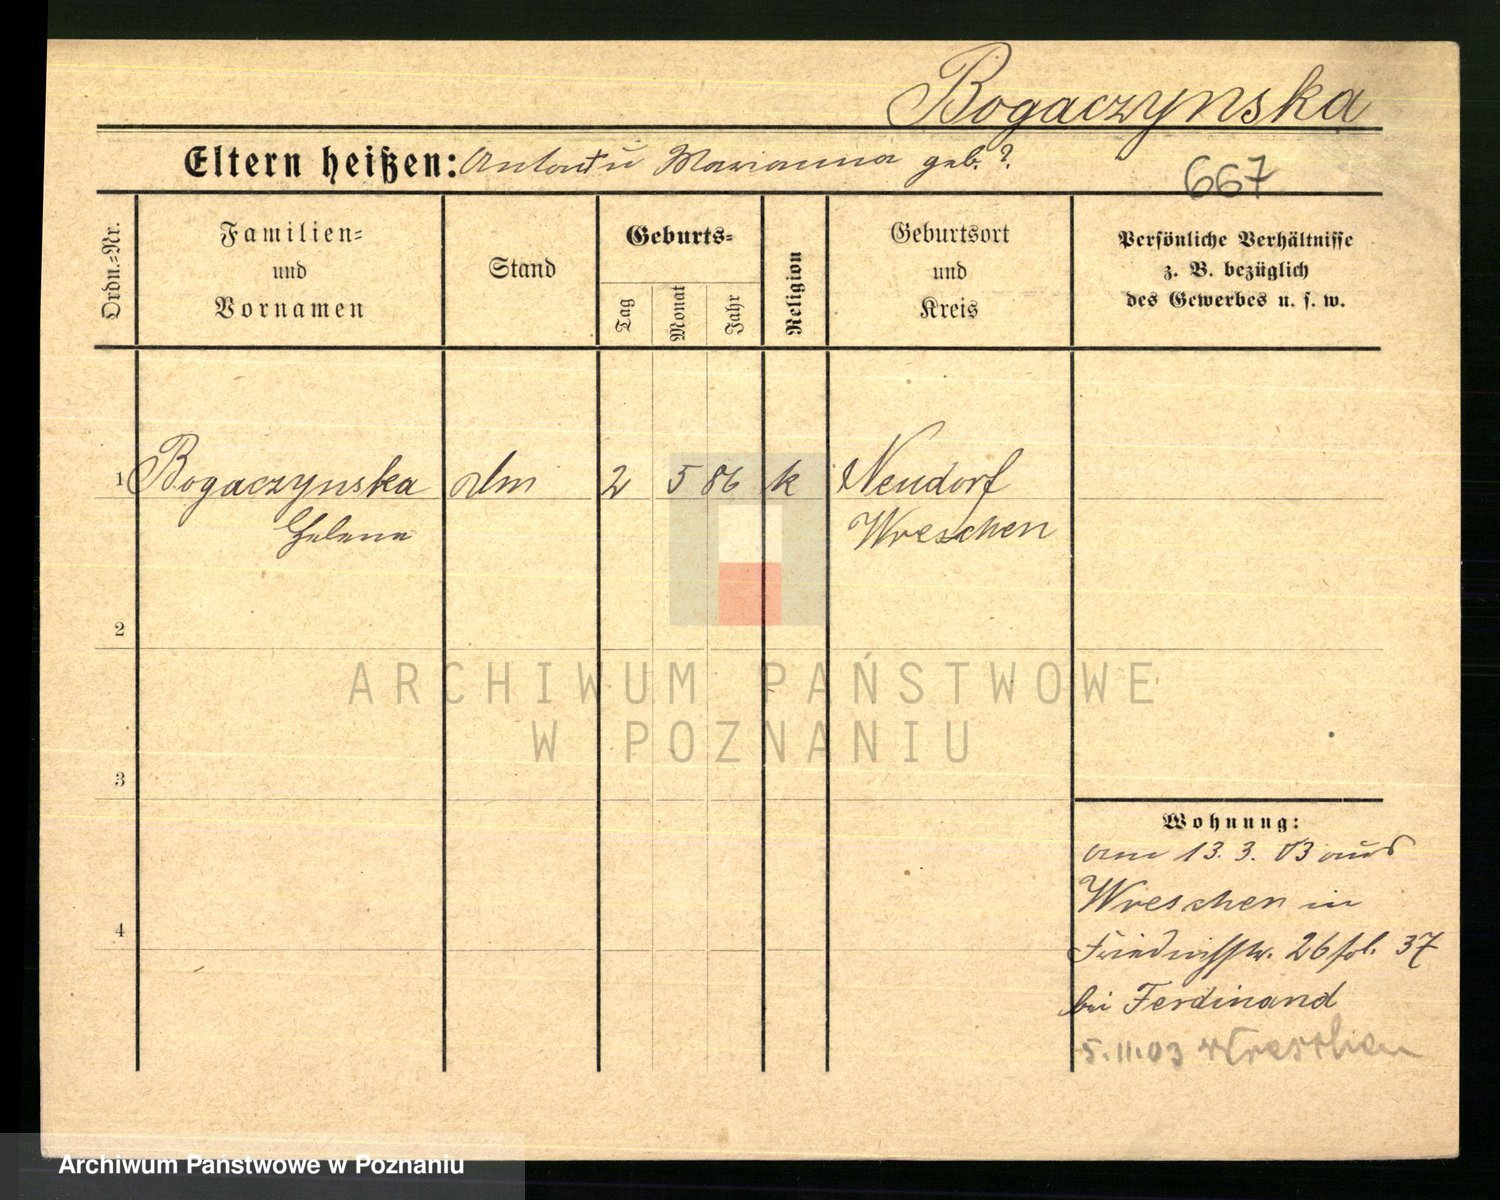 Bogaczynska
Eltern heißen: Anton u Marianna geb. ?
667
Ordn.-Nr.
Familien- und Vornamen
Stand
Geburts-
Tag
Monat
Jahr
Religion
Geburtsort und Kreis
Persönliche Verhältnisse
z. B. bezüglich
des Gewerbes u. s. w.
1 Bogaczynska 2 5 86 k Neudorf
Helena Wreschen
2
3
4
Wohnung:
am 13. 3. 03 aus
Wreschen in
Friedrichstr. 26 fol. 37
bei Ferdinand
5.11.03 Wreschen
ARCHIWUM PAŃSTWOWE
W POZNANIU
Archiwum Państwowe w Poznaniu